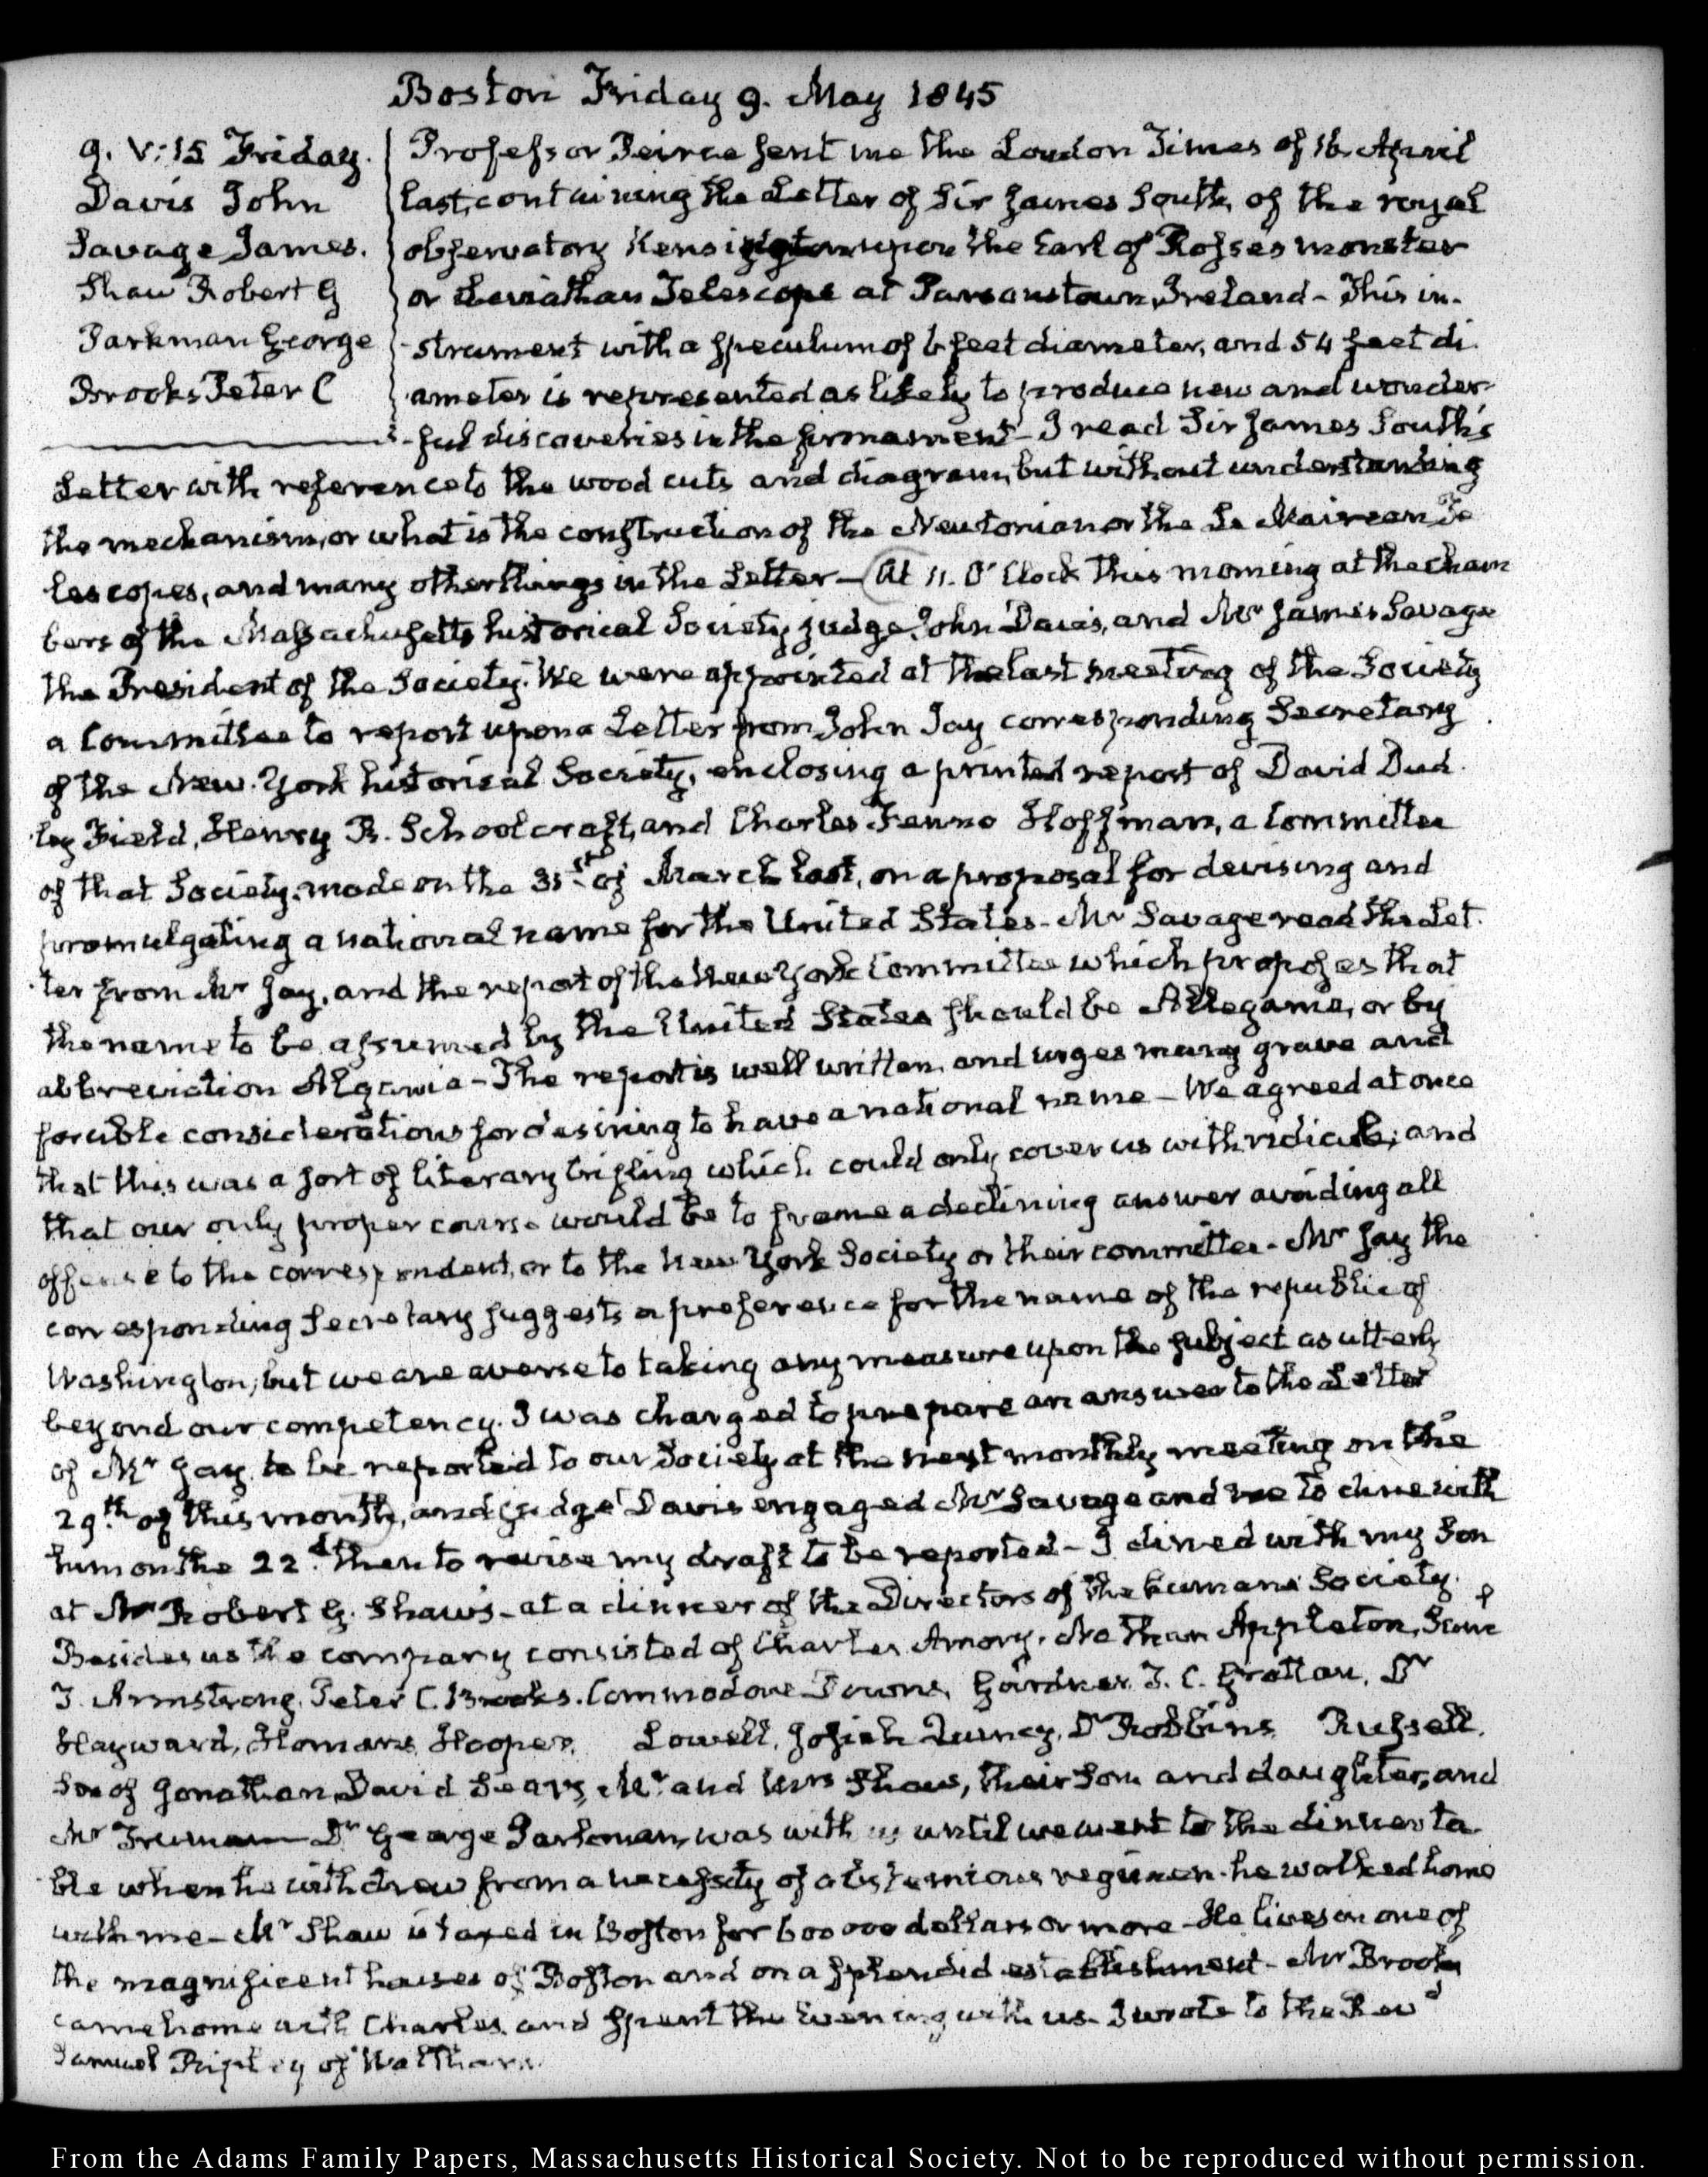 Boston Friday 9. May 1845
9. V:15 Friday.
Davis John
Savage James.
Shaw Robert G
Parkman George
Brooks Peter C
Professor Peirce sent me the London Times of 16. April
last, containing the Letter of Sir James South, of the royal
observatory Kensington upon the Earl of Rosses monster
or Leviathan Telescope at Parsonstown, Ireland - This in-
strument with a speculum of 6 feet diameter, and 54 feet di
ameter is represented as likely to produce new and wonder-
-ful discoveries in the firmament - I read Sir James South's
Letter with reference to the wood cuts and diagram, but without understanding
the mechanism, or what is the construction of the Newtonian or the Le Mairean Te
lescopes, and many other things in the Letter - At 11. O'Clock this morning at the cham
bers of the Massachusetts historical Society judge John Davis, and Mr James Savage
the President of the Society. We were appointed at the last meeting of the Society
a Committee to report upon a Letter from John Jay corresponding Secretary
of the New-York historical Society, enclosing a printed report of David Dud
ley Field, Henry R. Schoolcraft, and Charles Fenno Hoffman, a Committee
of that Society, made on the 31st of March last, on a proposal for devising and
promulgating a national name for the United States - Mr Savage read the Let-
ter from Mr Jay, and the report of the New York Committee which proposes that
the name to be assumed by the United States should be Allegania, or by
abbreviation Algania - The report is well written, and urges many grave and
forcible considerations for desiring to have a national name - We agreed at once
that this was a sort of literary trifling which could only cover us with ridicule; and
that our only proper course would be to frame a declining answer avoiding all
offense to the correspondent, or to the New York Society or their committee - Mr Jay the
corresponding Secretary suggests a preference for the name of the republic of
Washington; but we are averse to taking any measure upon the subject as utterly
beyond our competency. I was charged to prepare an answer to the Letter
of Mr Jay to be reported to our Society at the next monthly meeting on the
29th of this month, and judge Davis engaged Mr Savage and me to dine with
him on the 22d. then to revise my draft to be reported - I dined with my Son
at Mr Robert G. Shaw's - at a dinner of the Directors of the humane Society.
Besides us the company consisted of Charles Amory, Nathan Appleton,
T. Armstrong, Peter C. Brooks, Commodore Downs, Gardner, T. C. Grattan, Dr
Hayward, Homans, Hooper, Lowell, Josiah Quincy, Dr Robbins Russell,
Son of Jonathan, David Sears, Mr. and Mrs Shaw, their Son and daughter, and
Mr Truman Dr George Parkman, was with us until we went to the dinner ta
ble when he withdrew from a necessity of abstemious regimen. he walked home
with me - Mr Shaw is taxed in Boston for 600 000 dollars or more - He lives in one of
the magnificent houses of Boston and on a splendid establishment - Mr Brooks
came home with Charles, and spent the Evening with us. I wrote to the Revd
Samuel Ripley of Waltham.
From the Adams Family Papers, Massachusetts Historical Society. Not to be reproduced without permission.